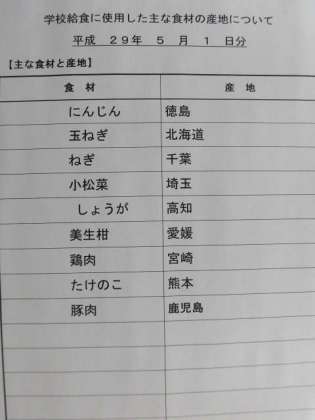 学校給食に使用した主な食材の産地について
平成 29年 5 月 1 日分
【主な食材と産地】
食 材 産 地
にんじん 徳島
玉ねぎ 北海道
ねぎ 千葉
小松菜 埼玉
しょうが 高知
美生柑 愛媛
鶏肉 宮崎
たけのこ 熊本
豚肉 鹿児島